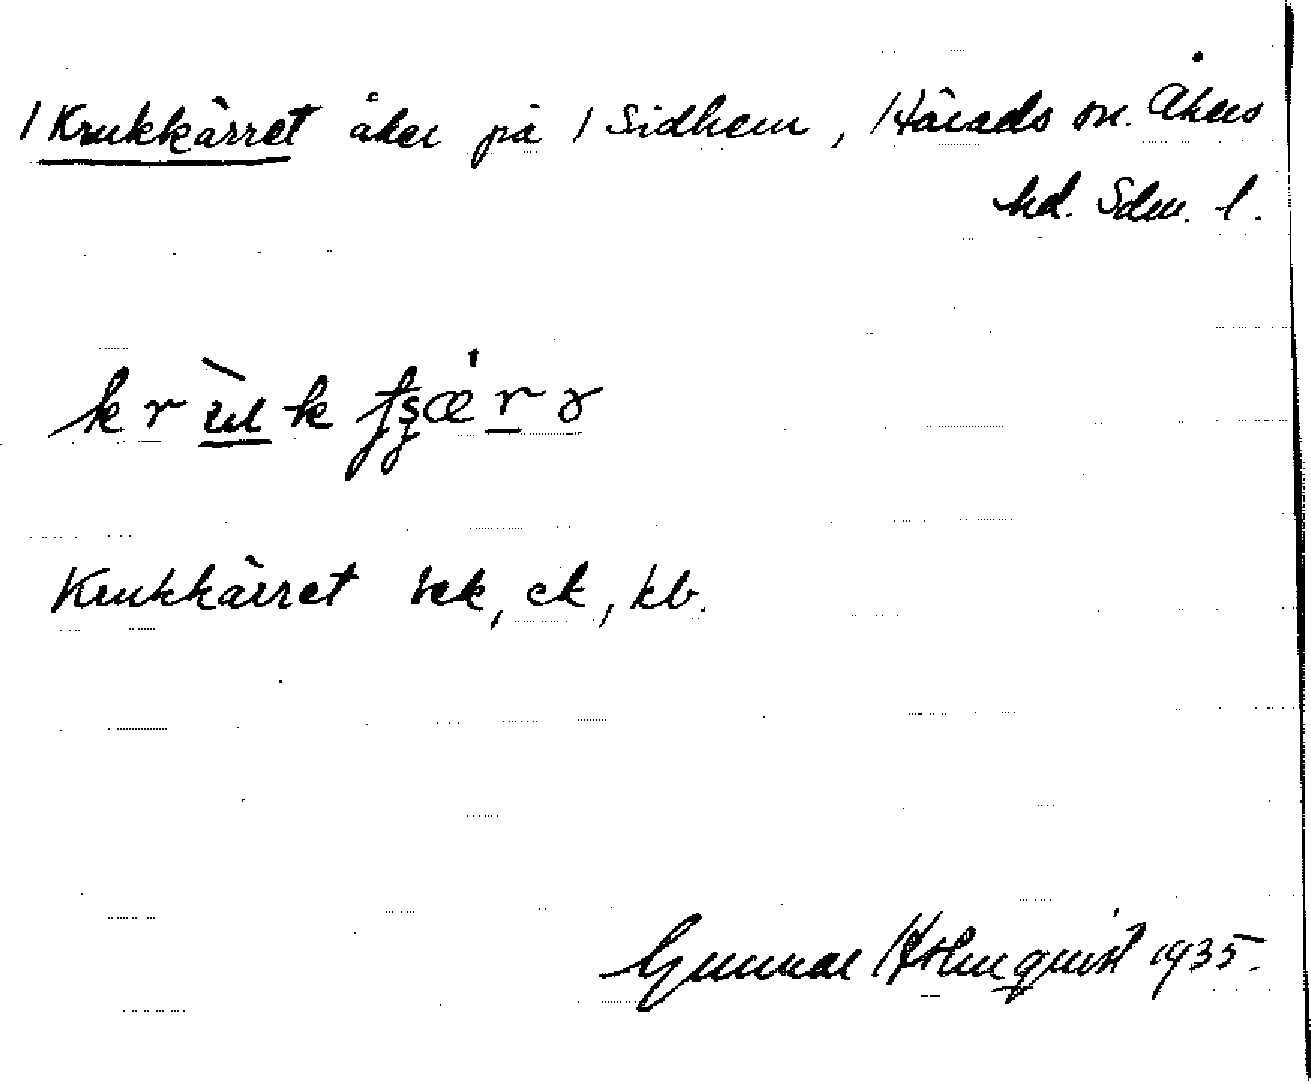 Krukkärret åker på Sidhem, Härads sn. Åkers
hd. Sdm. l.
Krukkärret uek, ek, kb.
Gunnar Holmquist 1935.